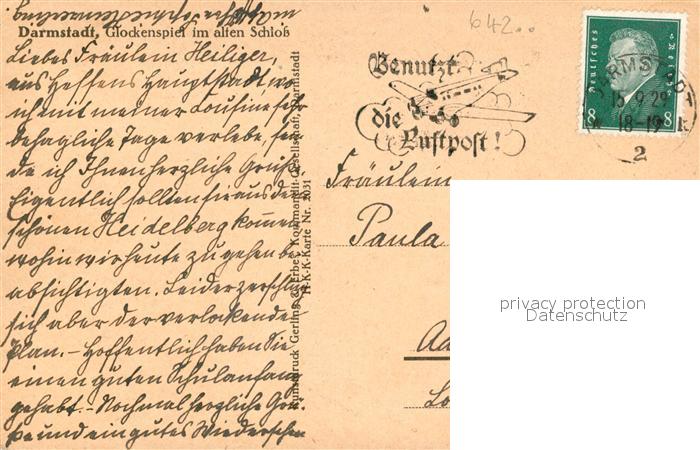 642..
Darmstadt, Glockenspiel im alten Schloß
Liebes Fräulein Heiliger,
aus Hessens Hauptstadt, wo
ich mit meiner Cousine sehr
behagliche Tage verlebe, sen-
de ich Ihnen herzliche Grüße.
Eigentlich sollten sie aus dem
schönen Heidelberg kommen,
wohin wir heute zu gehen be-
absichtigten. Leider zerschlug
sich aber der verlockende
Plan. – Hoffentlich haben Sie
einen guten Schulanfang
gehabt. – Nochmal herzliche Grü-
ße und ein gutes Wiedersehen
Kunstdruck Gerling & Erbes Kommandit-Gesellschaft, Darmstadt
H-K-K-Karte Nr. 2031
Benutzt
die
Luftpost!
Deutsches
8 8
DARMSTADT
15.9.29
18-19
2
Fräulein
Paula
privacy protection
Datenschutz